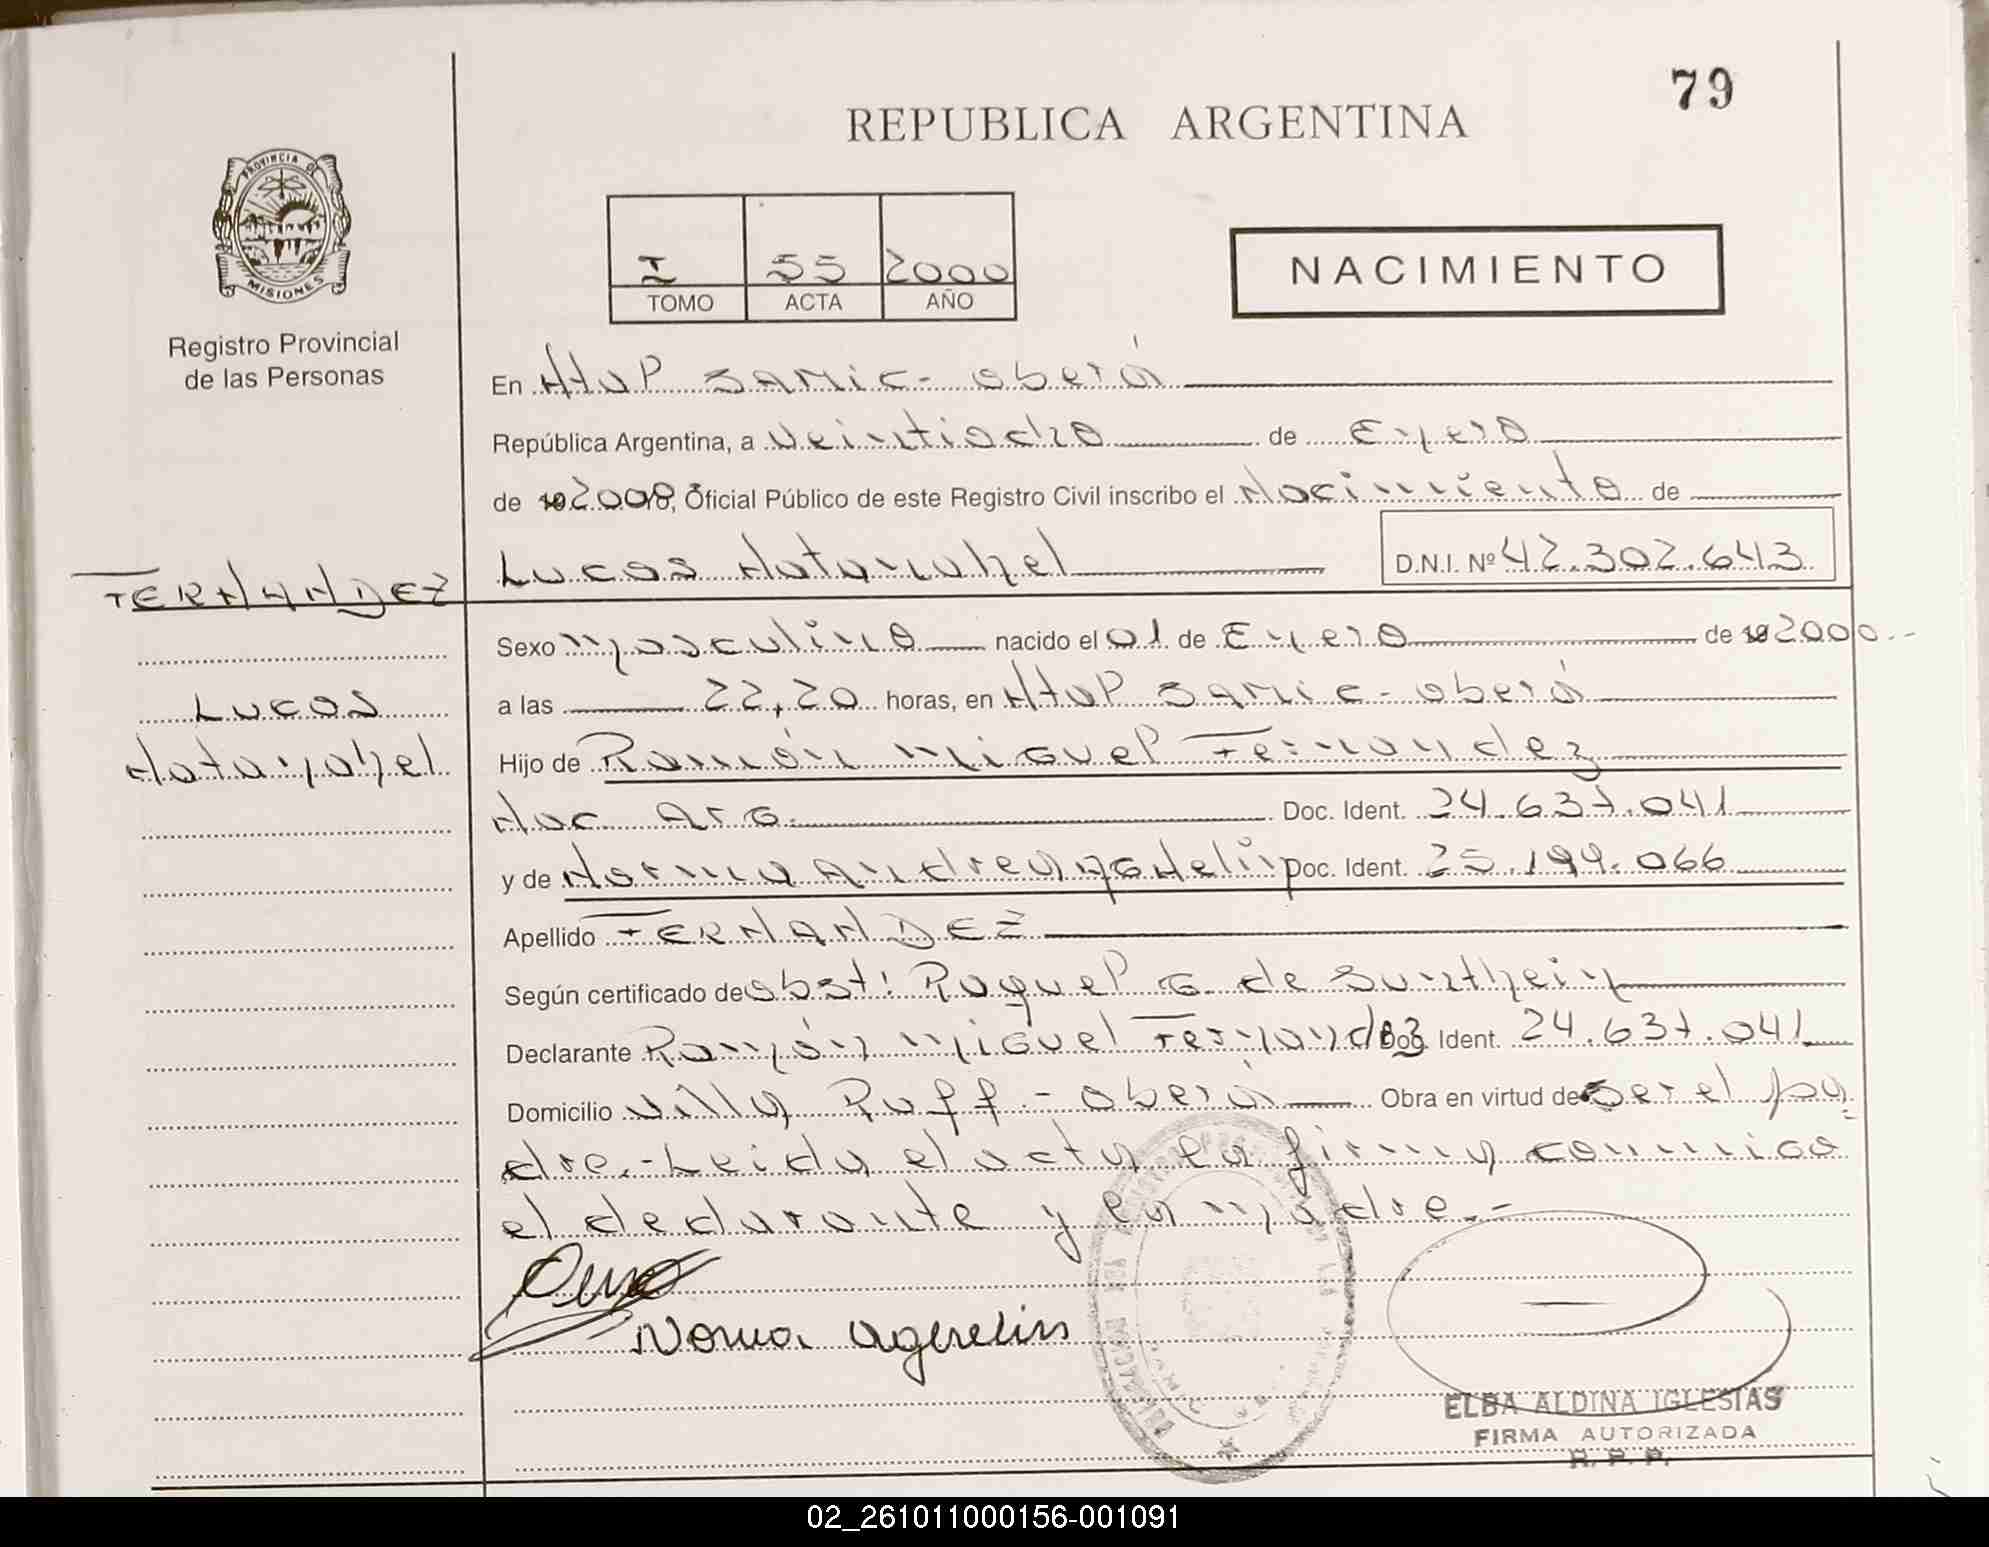 79
REPUBLICA ARGENTINA
PROVINCIA DE
MISIONES
Registro Provincial
de las Personas
I 55 2000
TOMO ACTA AÑO
NACIMIENTO
En Htal SAMIC - oberá
República Argentina, a veintiocho de Enero
de 2000, Oficial Público de este Registro Civil inscribo el Nacimiento de
Lucas Natanahel D.N.I. Nº 42.302.643
FERNANDEZ
Lucas
Natanahel
Sexo masculino nacido el 01 de Enero de 19 2000.-
a las 22,20 horas, en Htal SAMIC - oberá
Hijo de Ramón Miguel Fernandez
Nac Arg. Doc. Ident. 24.637.041
y de Norma Andrea Doc. Ident. 25.199.066
Apellido FERNANDEZ
Según certificado de obst: Raquel G. de
Declarante Ramón Miguel Fernandez Doc. Ident. 24.637.041
Domicilio Villa Ruff - oberá Obra en virtud de ser el pa
dre.- Leida el acta la firma conmigo
el declarante y la madre.-
Norma
ELBA ALDINA IGLESIAS
FIRMA AUTORIZADA
R. P. P.
02_261011000156-001091